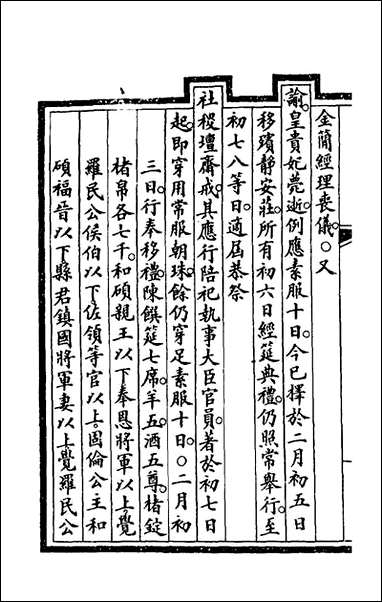 金簡經理喪儀○又
諭皇貴妃薨逝例應素服十日今已擇於二月初五日
移殯靜安莊所有初六日經筵典禮仍照常舉行至
初七八等日適屆春祭
社稷壇齋戒其應行陪祀執事大臣官員著於初七日
起即穿用常服朝珠餘仍穿足素服十日○二月初
三日行奉移禮陳饌筵七席羊五酒五尊楮錠
楮帛各七千和碩親王以下奉恩將軍以上覺
羅民公侯伯以下佐領等官以上固倫公主和
碩福晉以下縣君鎮國將軍妻以上覺羅民公